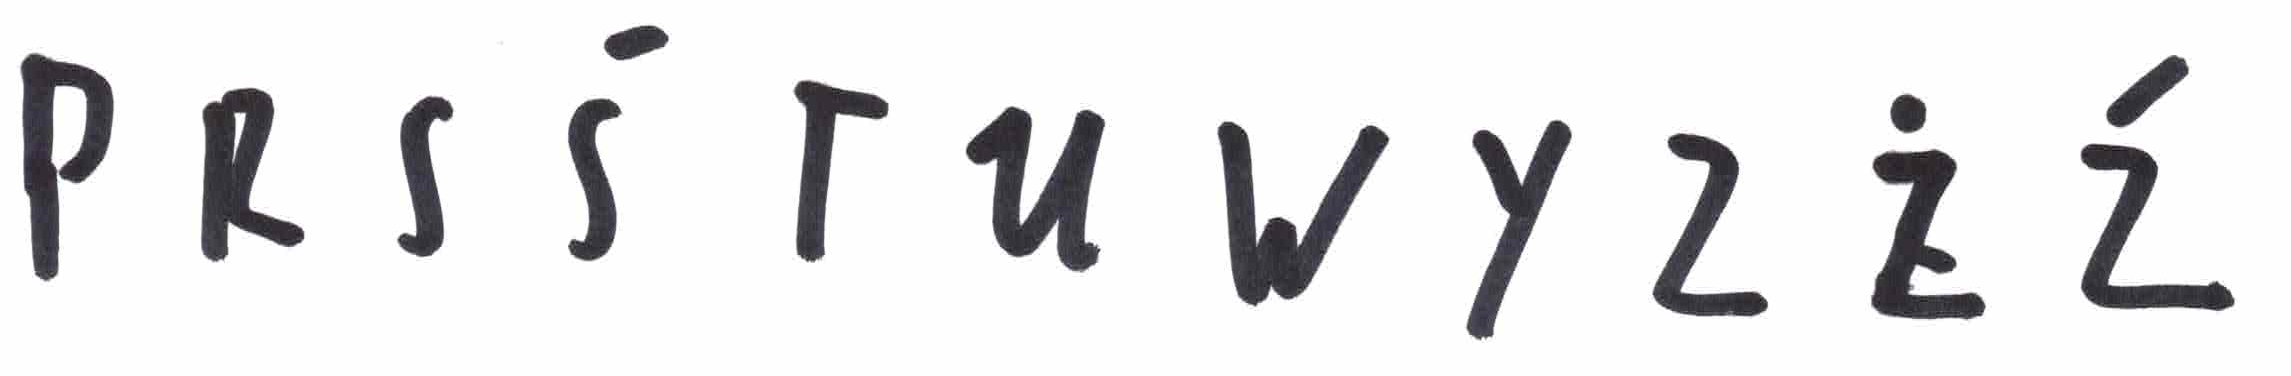 P R S Ś T U W Y Z Ż Ź